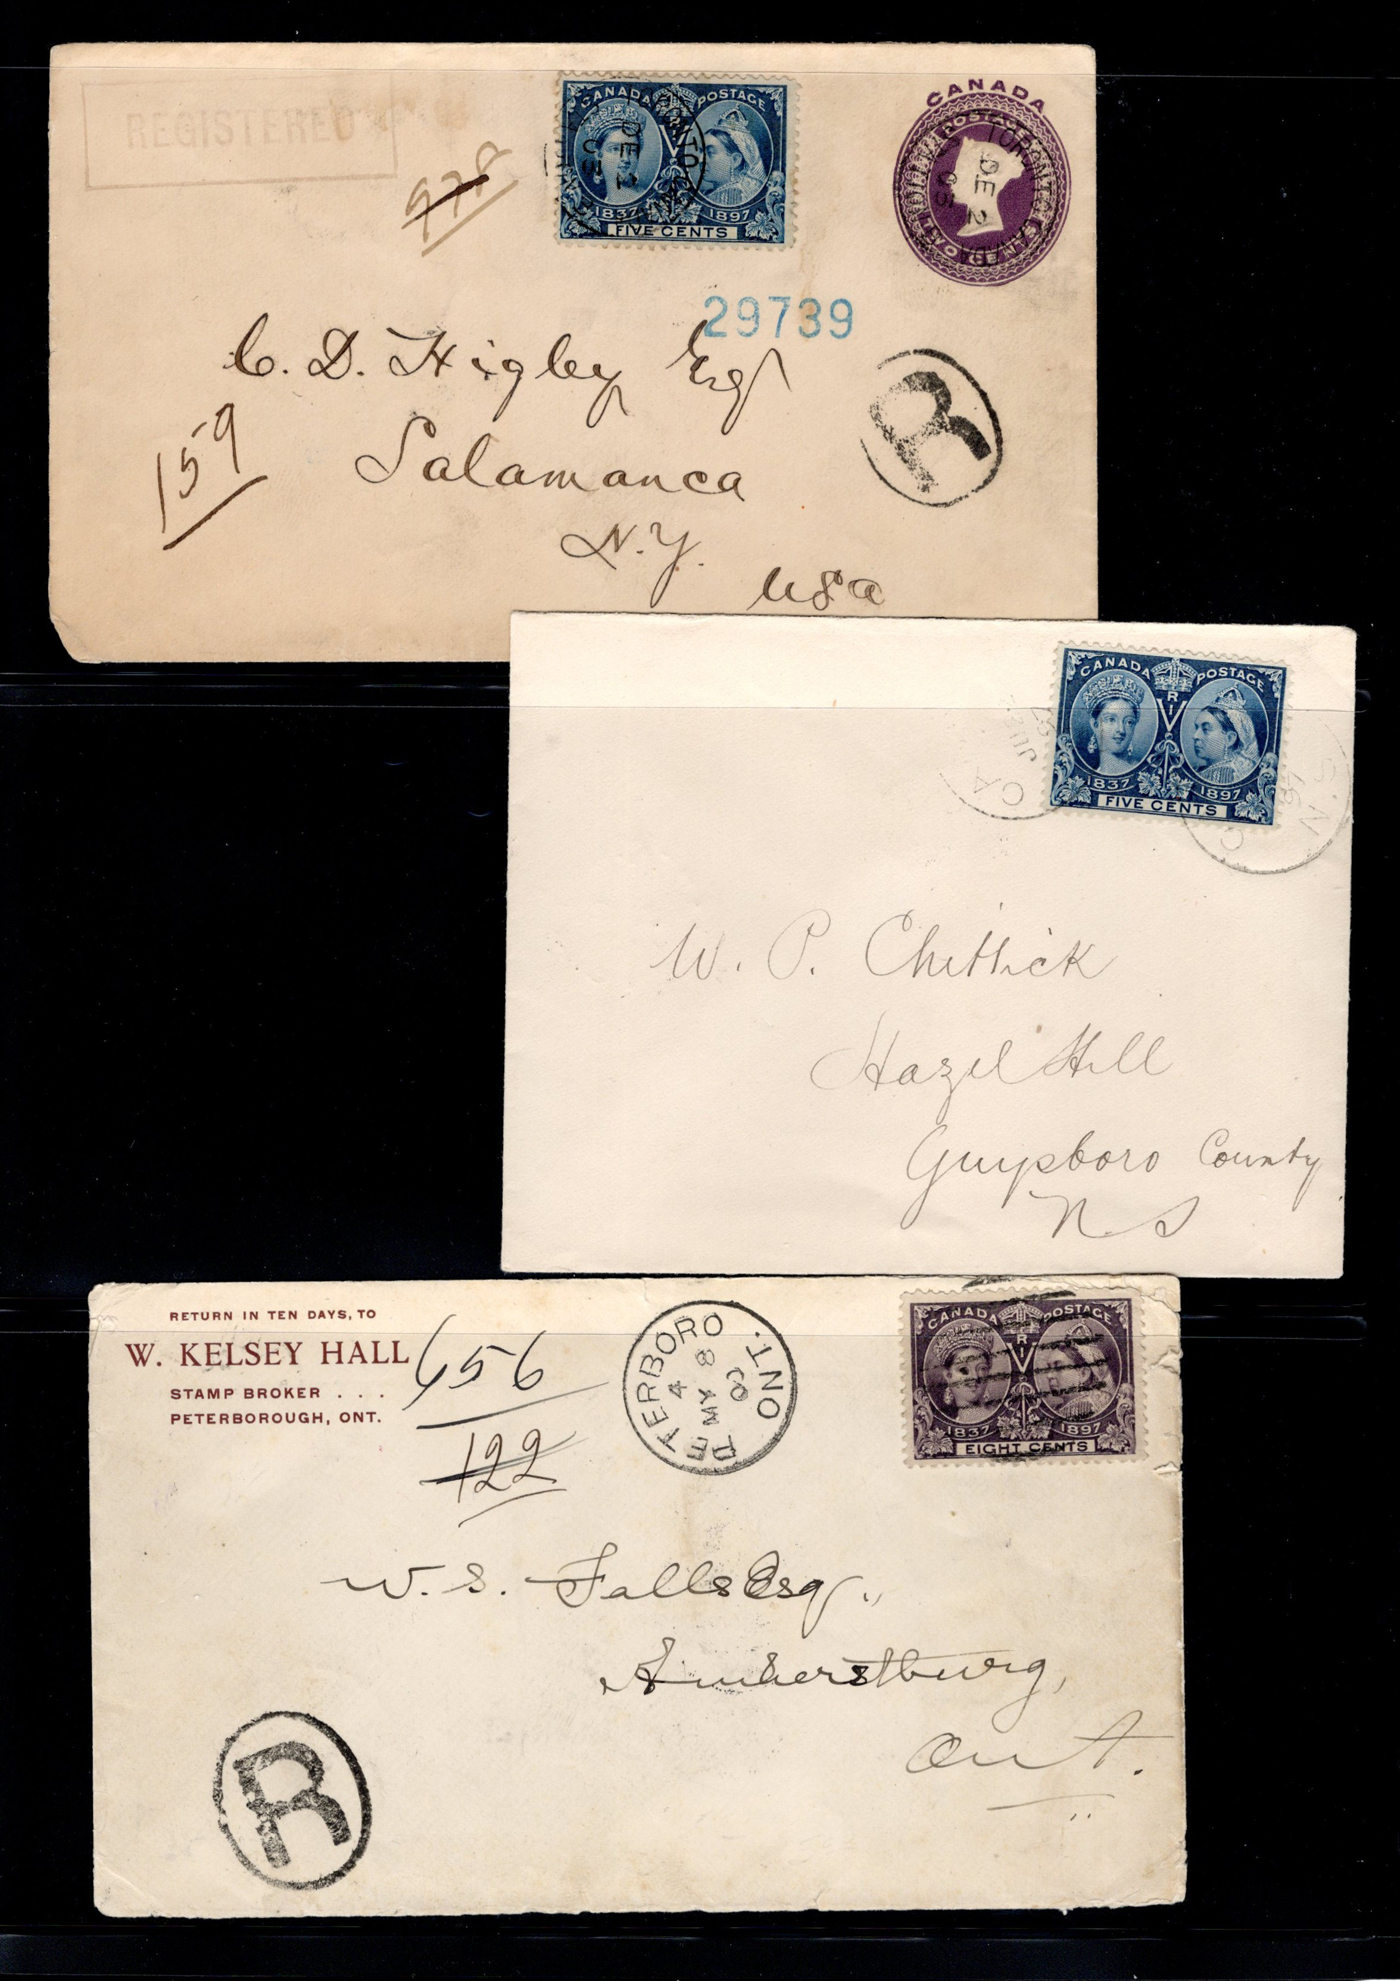 REGISTERED
978
CANADA POSTAGE
1837 1897
FIVE CENTS
TORONTO CANADA
DE 2
05
CANADA
POSTAGE
TWO CENTS
TORONTO CANADA
DE 2
05
29739
C. D. Higby Esq
R
159
Salamanca
N.Y.
USA
CANADA POSTAGE
V R I
1837 1897
FIVE CENTS
N.S.
97
W. P. Chittick
Hazel Hill
Guysboro County
N S
RETURN IN TEN DAYS, TO
W. KELSEY HALL
STAMP BROKER . . .
PETERBOROUGH, ONT.
656
122
PETERBORO ONT.
4
MY 8
00
CANADA POSTAGE
V R I
1837 1897
EIGHT CENTS
W. S. Falls Esq.,
Amherstburg,
Ont.
R